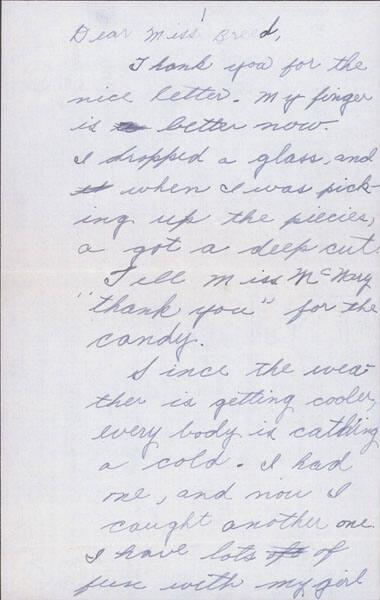 Dear Miss Breed,
Thank you for the
nice letter. My finger
is better now.
I dropped a glass, and
when I was pick-
ing up the piecies,
a got a deep cut.
Tell Miss McNary
"thank you" for the
candy.
Since the wea-
ther is getting cooler,
every body is catching
a cold. I had
one, and now I
caught another one.
I have lots of
fun with my girl